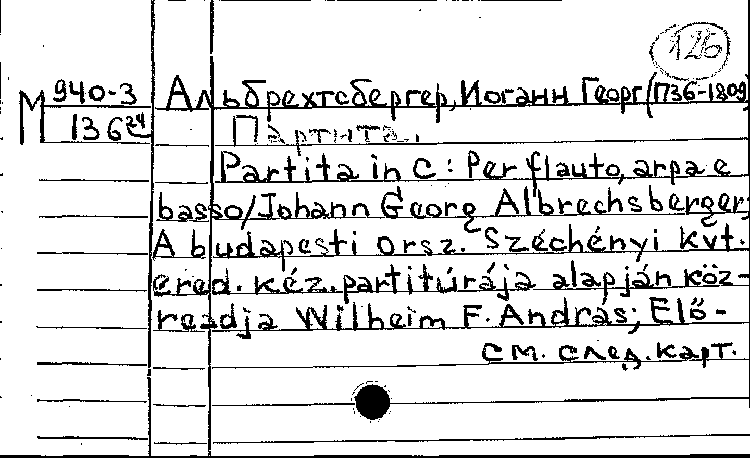 126
М 940-3 Альбрехтсбергер, Иоганн Георг (1736-1809)
13624 Партита.
Partita in C : Per flauto, arpa e
basso/Johann Georg Albrechsberger;
A budapesti orsz. Széchényi kvt.
ered. kéz. partitúrája alapján köz-
readja Wilheim F. András; Elő-
см. след. карт.